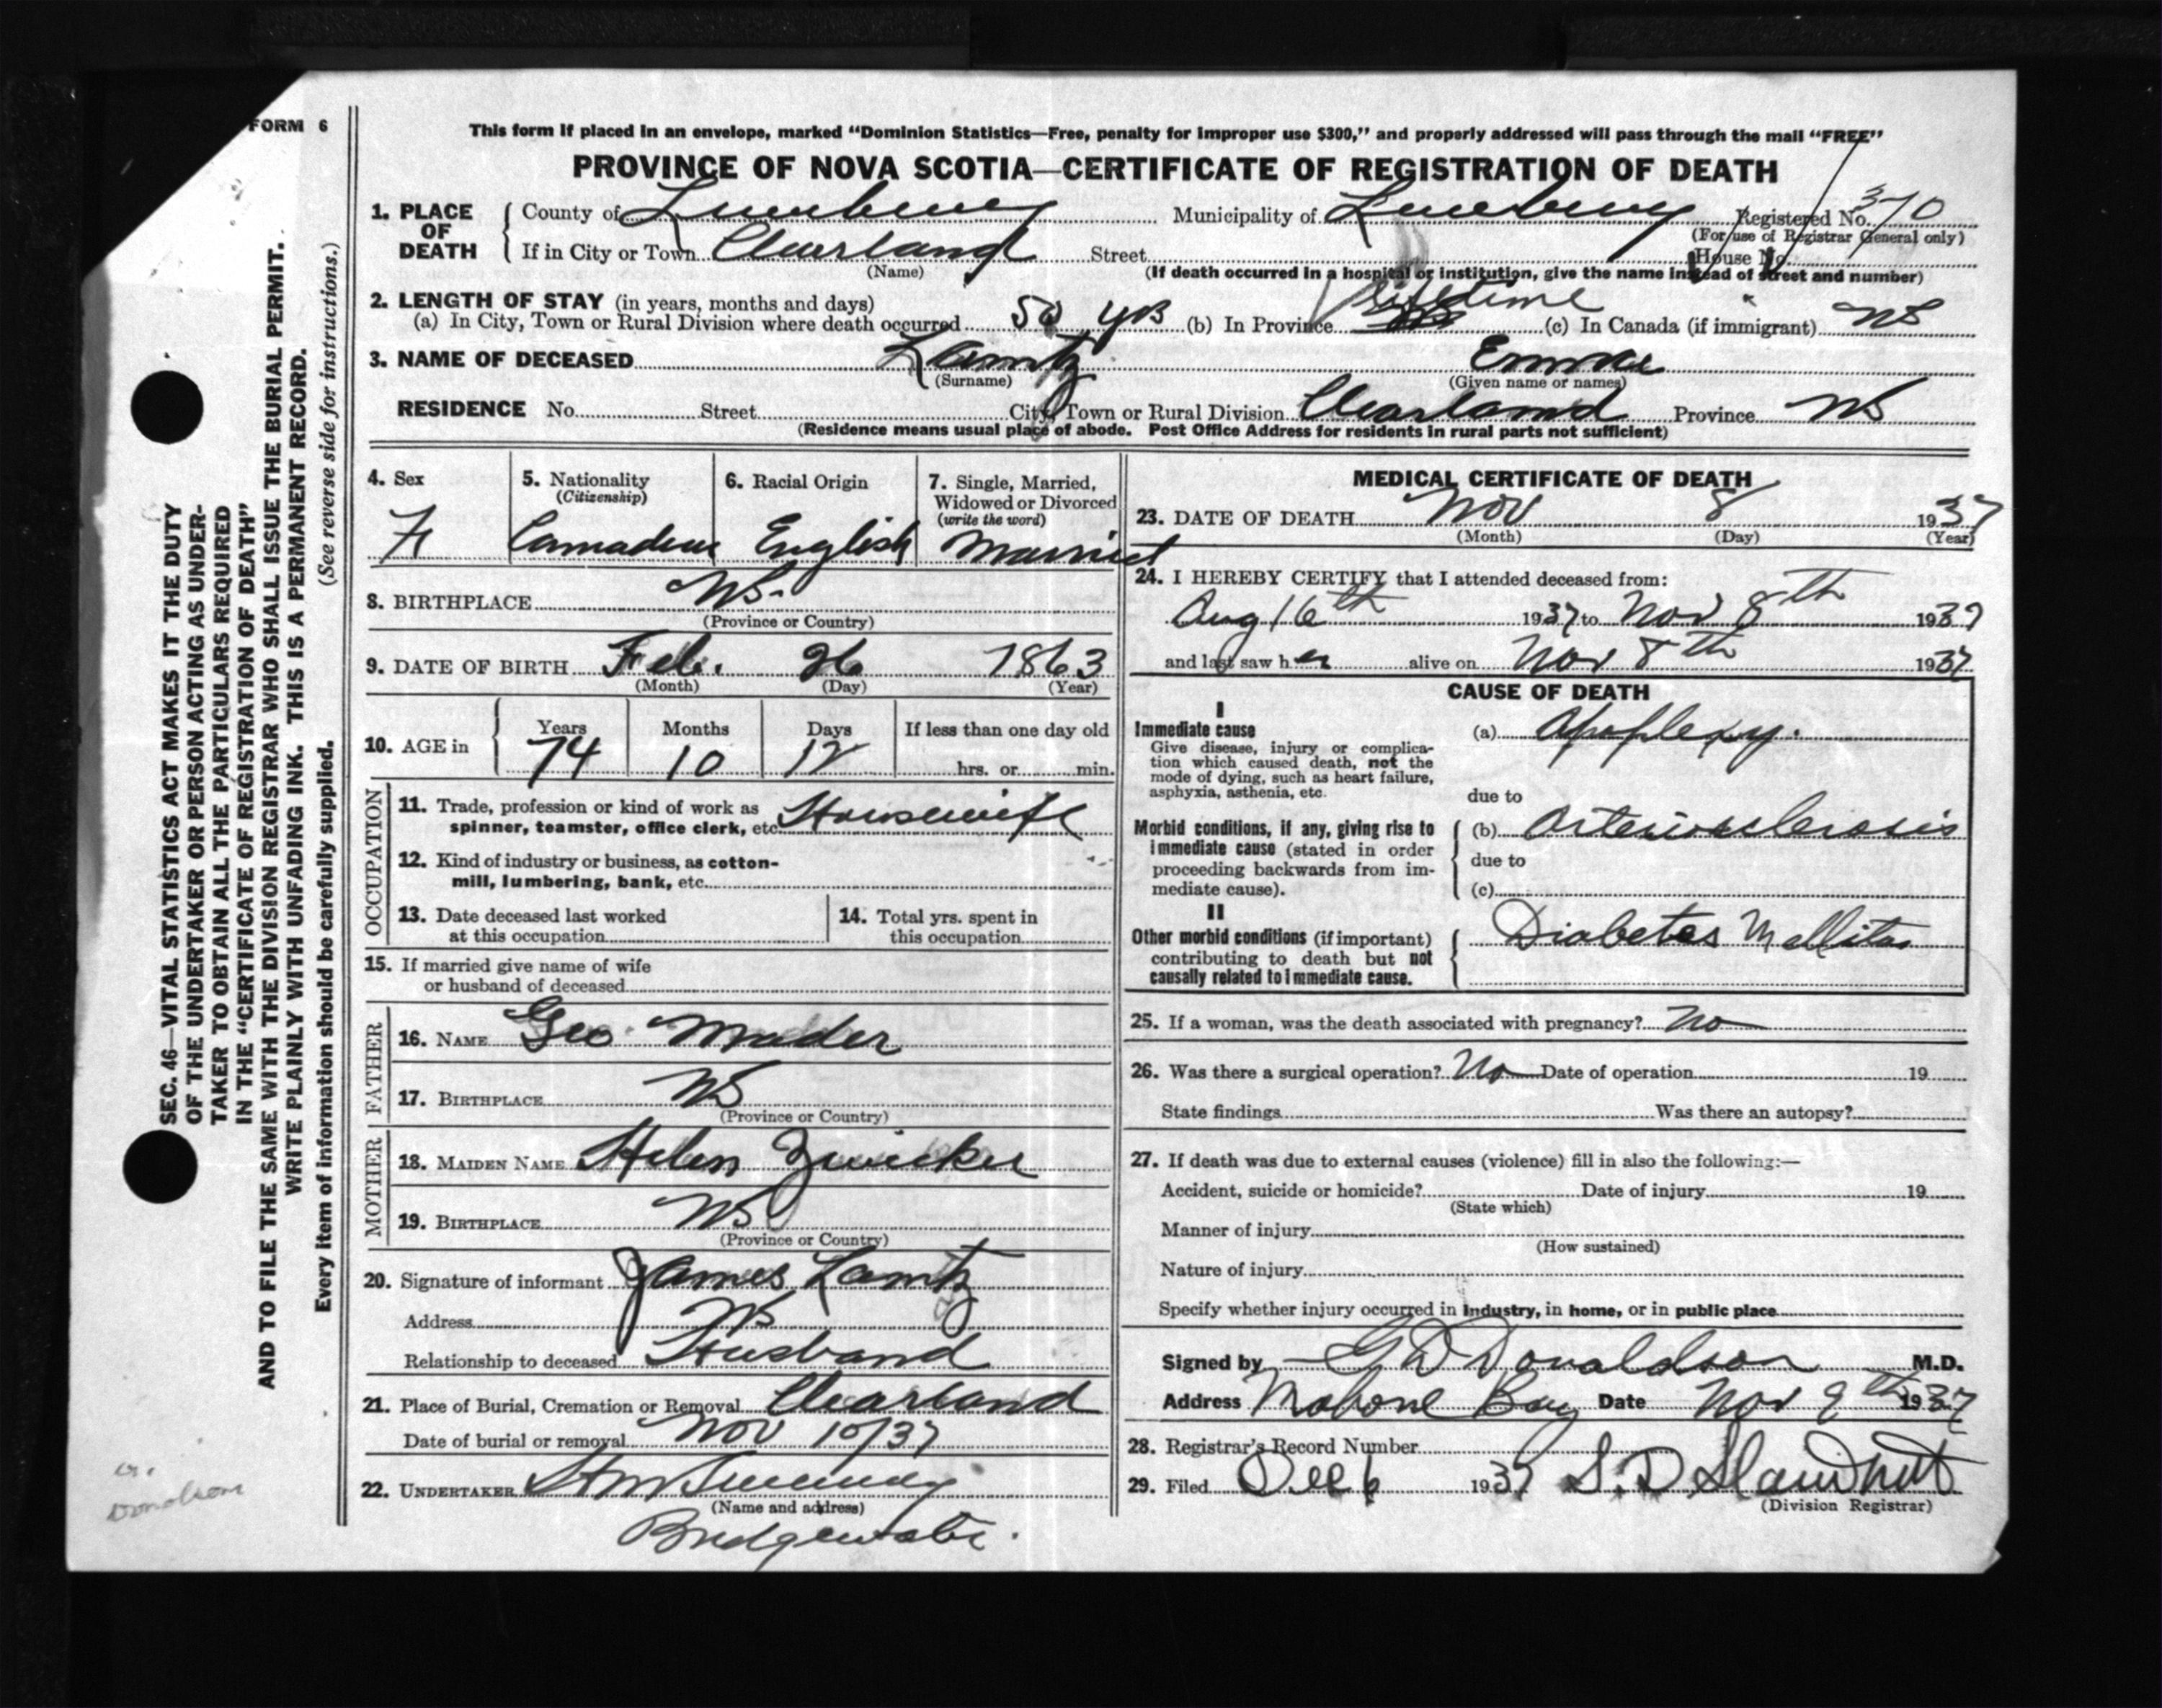 FORM 6
This form if placed in an envelope, marked "Dominion Statistics—Free, penalty for improper use $300," and properly addressed will pass through the mail "FREE"
PROVINCE OF NOVA SCOTIA—CERTIFICATE OF REGISTRATION OF DEATH
1. PLACE OF DEATH County of Lunenburg Municipality of Lunenburg Registered No. 370
(For use of Registrar General only)
If in City or Town Clearland Street House No.
(Name) (If death occurred in a hospital or institution, give the name instead of street and number)
2. LENGTH OF STAY (in years, months and days)
(a) In City, Town or Rural Division where death occurred 50 yrs (b) In Province lifetime (c) In Canada (if immigrant) NS
3. NAME OF DECEASED Lantz Emma
(Surname) (Given name or names)
RESIDENCE No. Street City, Town or Rural Division Clearland Province NS
(Residence means usual place of abode. Post Office Address for residents in rural parts not sufficient)
4. Sex 5. Nationality (Citizenship) 6. Racial Origin 7. Single, Married, Widowed or Divorced (write the word)
F Canadian English Married
8. BIRTHPLACE NS.
(Province or Country)
9. DATE OF BIRTH Feb. 26 1863
(Month) (Day) (Year)
10. AGE in Years Months Days If less than one day old
74 10 12 hrs. or min.
OCCUPATION
11. Trade, profession or kind of work as
spinner, teamster, office clerk, etc. Housewife
12. Kind of industry or business, as cotton-
mill, lumbering, bank, etc.
13. Date deceased last worked
at this occupation
14. Total yrs. spent in
this occupation
15. If married give name of wife
or husband of deceased
FATHER
16. NAME Geo Mader
17. BIRTHPLACE NS
(Province or Country)
MOTHER
18. MAIDEN NAME Helen Zwicker
19. BIRTHPLACE NS
(Province or Country)
20. Signature of informant James Lantz
Address NS
Relationship to deceased Husband
21. Place of Burial, Cremation or Removal Clearland
Date of burial or removal Nov 10/37
22. UNDERTAKER
(Name and address)
Bridgewater.
MEDICAL CERTIFICATE OF DEATH
23. DATE OF DEATH Nov 8 1937
(Month) (Day) (Year)
24. I HEREBY CERTIFY that I attended deceased from:
Aug 16th 1937 to Nov 8th 1937
and last saw her alive on Nov 8th 1937
CAUSE OF DEATH
I
Immediate cause (a) Apoplexy.
Give disease, injury or complica-
tion which caused death, not the
mode of dying, such as heart failure,
asphyxia, asthenia, etc.
due to
Morbid conditions, if any, giving rise to (b) Arteriosclerosis
immediate cause (stated in order
due to
proceeding backwards from im-
mediate cause). (c)
II
Other morbid conditions (if important) Diabetes Mellitas
contributing to death but not
causally related to immediate cause.
25. If a woman, was the death associated with pregnancy? No
26. Was there a surgical operation? No Date of operation 19
State findings Was there an autopsy?
27. If death was due to external causes (violence) fill in also the following:—
Accident, suicide or homicide? Date of injury 19
(State which)
Manner of injury
(How sustained)
Nature of injury
Specify whether injury occurred in industry, in home, or in public place
Signed by G D Donaldson M.D.
Address Mahone Bay Date Nov 9th 1937
28. Registrar's Record Number
29. Filed Dec 6 1937
(Division Registrar)
SEC. 46—VITAL STATISTICS ACT MAKES IT THE DUTY
OF THE UNDERTAKER OR PERSON ACTING AS UNDER-
TAKER TO OBTAIN ALL THE PARTICULARS REQUIRED
IN THE "CERTIFICATE OF REGISTRATION OF DEATH"
AND TO FILE THE SAME WITH THE DIVISION REGISTRAR WHO SHALL ISSUE THE BURIAL PERMIT.
WRITE PLAINLY WITH UNFADING INK. THIS IS A PERMANENT RECORD.
Every item of information should be carefully supplied. (See reverse side for instructions.)
Donolson